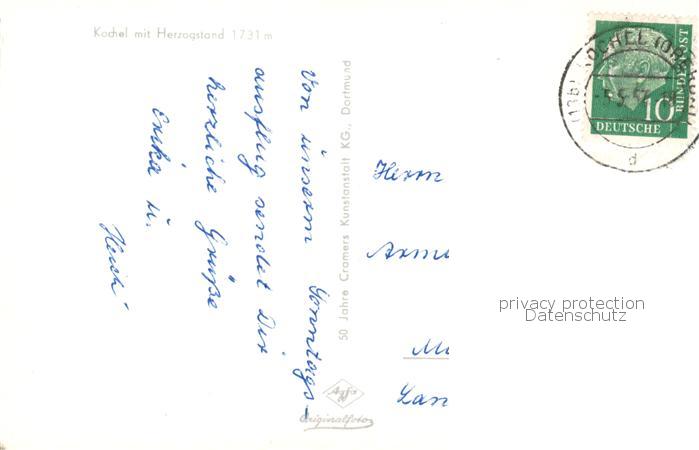 Kochel mit Herzogstand 1731 m
Von unserm Sonntags-
ausflug sendet Dir
herzliche Grüße
Erika u.
50 Jahre Cramers Kunstanstalt KG., Dortmund
Agfa
Originalfoto
Herrn
DEUTSCHE
BUNDESPOST
10
privacy protection
Datenschutz